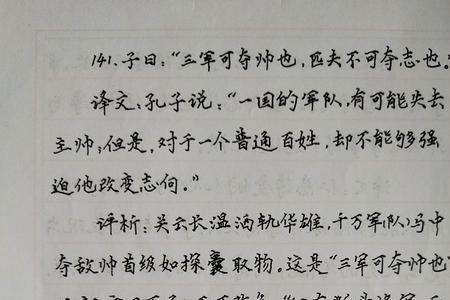 141.子曰：“三军可夺帅也，匹夫不可夺志也。”
译文：孔子说：“一国的军队，有可能失去
主帅；但是，对于一个普通百姓，却不能够强
迫他改变志向。”
评析：关云长温酒斩华雄，千万军(队)马中
夺敌帅首级如探囊取物。这是“三军可夺帅也”